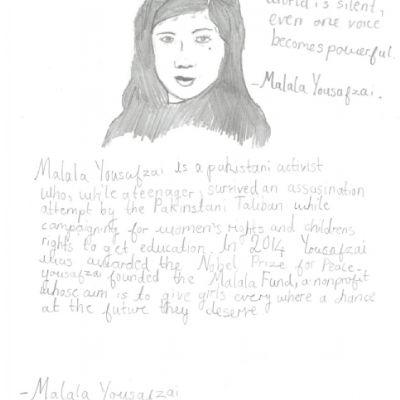 world is silent,
even one voice
becomes powerful.
-Malala Yousafzai.
Malala Yousafzai is a pakistani activist
who, while a teenager, survived an assasination
attempt by the Pakinstani Taliban while
campaigning for women's rights and childrens
rights to get education. In 2014 Yousafzai
was awarded the Nobel Prize for Peace.
Yousafzai founded the Malala Fund, a nonprofit
whose aim is to give girls every where a chance
at the future they deserve.
-Malala Yousafzai